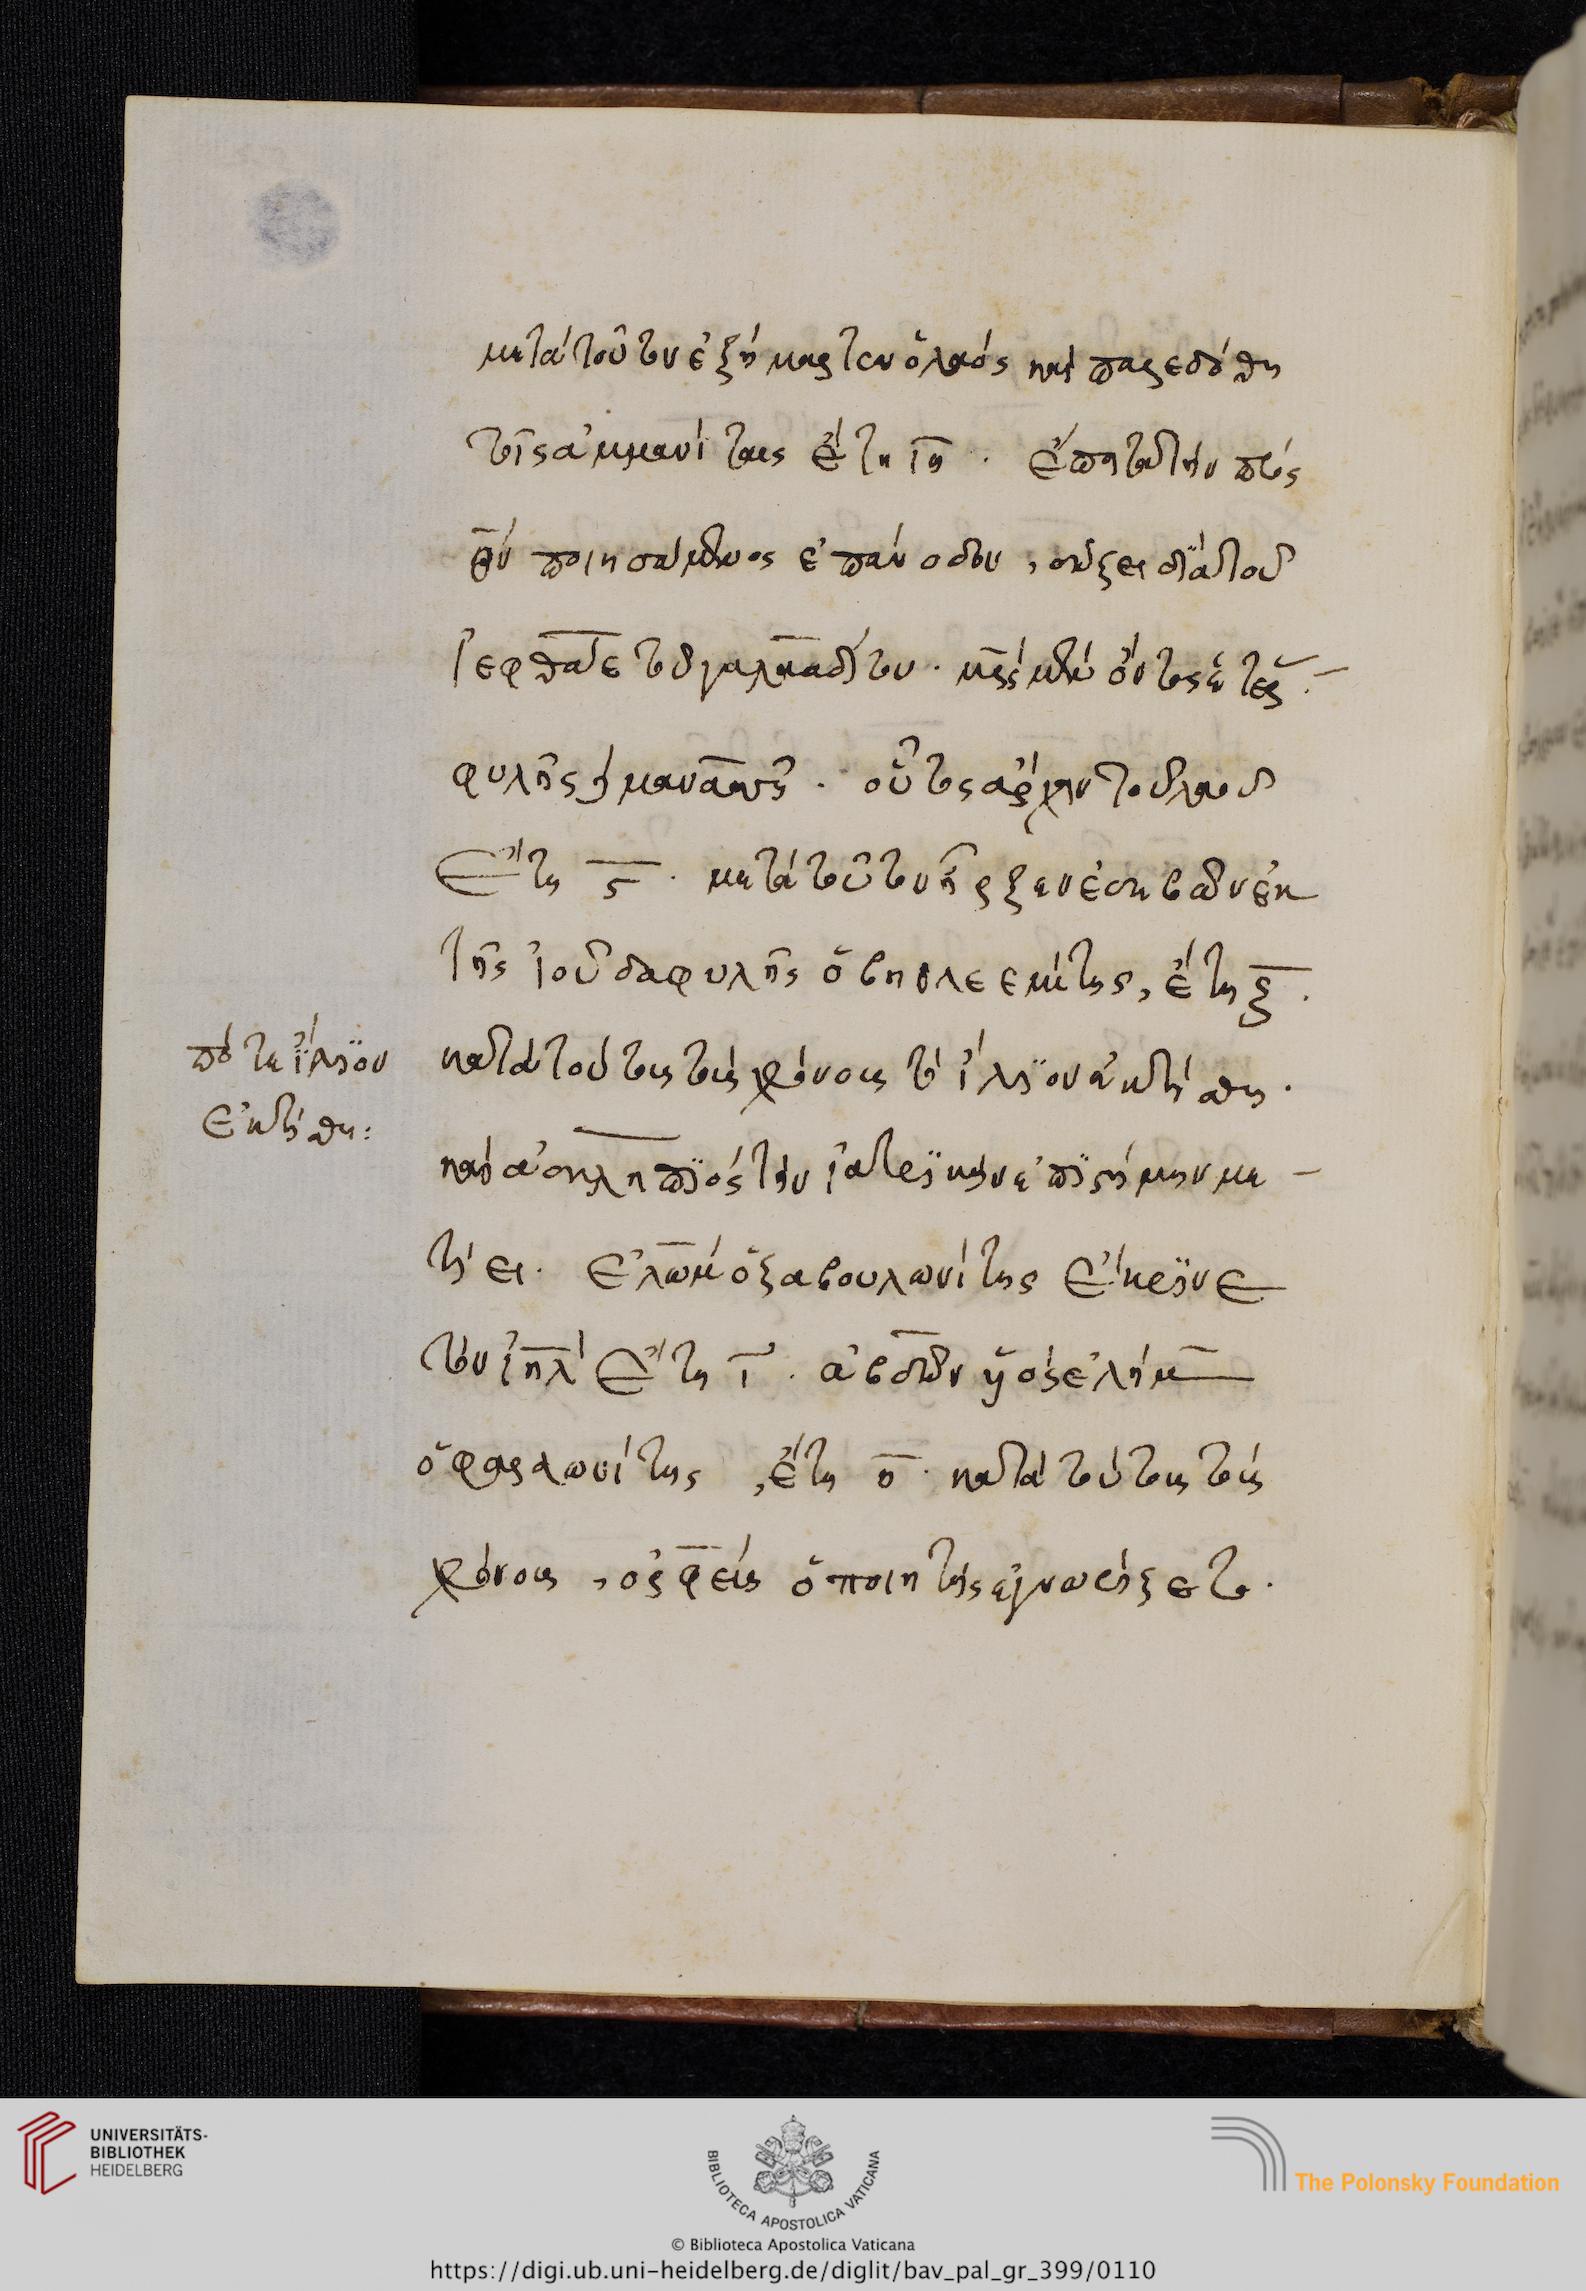 μετὰ τοῦτον ἐξήμαρτεν ὁ λαὸς καὶ παρεδόθη
τοῖς ἀμμανίταις ἔτη ιη. ἔπειτα τὴν πρὸς
θν ποιησάμενος ἐπάνοδον, σώζει διὰ τοῦ
Ἰεφθάε τοῦ γαλααδίτου. μρς μὲν ὄντος ἑτέρ
φυλῆς δὲ μανασσῆ. οὗτος ἄρχει τοῦ λαοῦ
ἔτη ς. μετὰ τοῦτον ἦρξεν ἐσεβὼν ἐκ
τῆς ἰούδα φυλῆς ὁ βηθλεεμίτης, ἔτη ξ.
πότε ἴλιον
ἐκτίσθη:
κατὰ τούτους τοὺς χρόνους τὸ ἴλιον ἐκτίσθη.
καὶ ἀσκληπιὸς τὴν ἰατρικὴν ἐπιστήμην με
τήει. ἐλὼμ ὁ ζαβουλωνίτης ἔκρινε
τὸν ιηλ ἔτη ι. ἀβδὼν υἱὸς ἐλὴμ
ὁ φαραωνίτης, ἔτη η. κατὰ τούτους τοὺς
χρόνους, ὀρφεὺς ὁ ποιητὴς ἐγνωρίζετο.
UNIVERSITÄTS-
BIBLIOTHEK
HEIDELBERG
BIBLIOTECA APOSTOLICA VATICANA
The Polonsky Foundation
© Biblioteca Apostolica Vaticana
https://digi.ub.uni-heidelberg.de/diglit/bav_pal_gr_399/0110